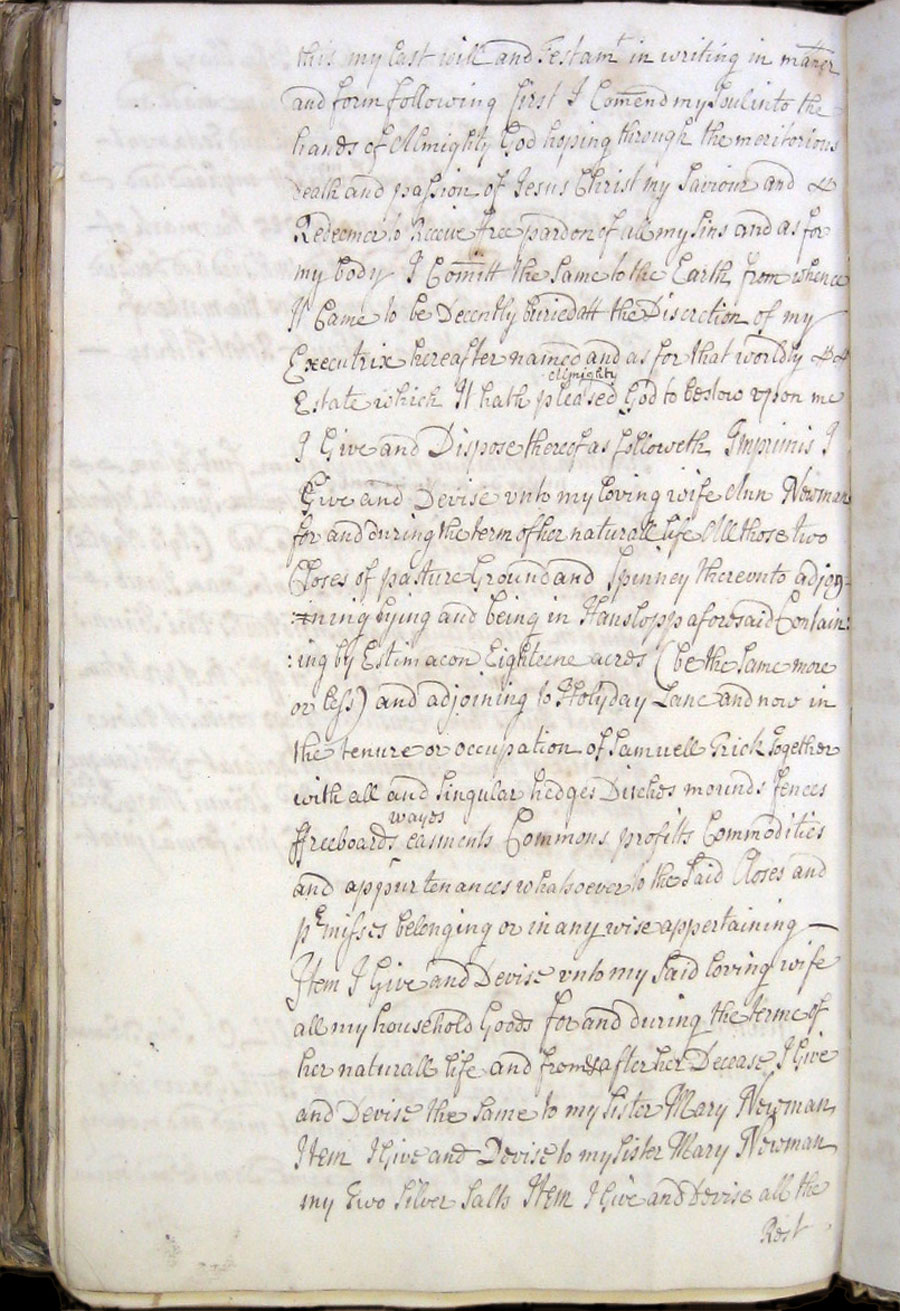 this my Last will and Testamt in writing in maner
and form following first I Comend my Soul into the
hands of Almighty God hoping through the meritorious
death and passion of Jesus Christ my Saviour and
Redeemer to Receive free pardon of all my Sins and as for
my body I Comitt the Same to the Earth from whence
It Came to be Decently buried att the Discretion of my
Executrix hereafter named and as for that worldly
Almighty
Estate which It hath pleased God to bestow vpon me
I Give and Dispose thereof as followeth Imprimis I
Give and Devise vnto my loving wife Ann Newman
for and during the term of her naturall life All those two
Closes of pasture Ground and Spinney therevnto adjoy=
=ning lying and being in Hanslopp aforesaid Contain:
:ing by Estimacon Eighteene acres (be the Same more
or less) and adjoining to Holyday Lane and now in
the tenure or occupation of Samuell Brick together
with all and Singular hedges Ditches mounds fences
wayes
ffreeboards easments Commons profitts Commodities
and appurtenances whatsoever to the Said Closes and
pRmisses belonging or in any wise appertaining
Item I Give and Devise vnto my Said loving wife
all my household Goods for and during the terme of
her naturall life and from & after her Decease I Give
and Devise the Same to my Sister Mary Newman
Item I Give and Devise to my Sister Mary Newman
my Two Silver Salts Item I Give and Devise all the
Rest